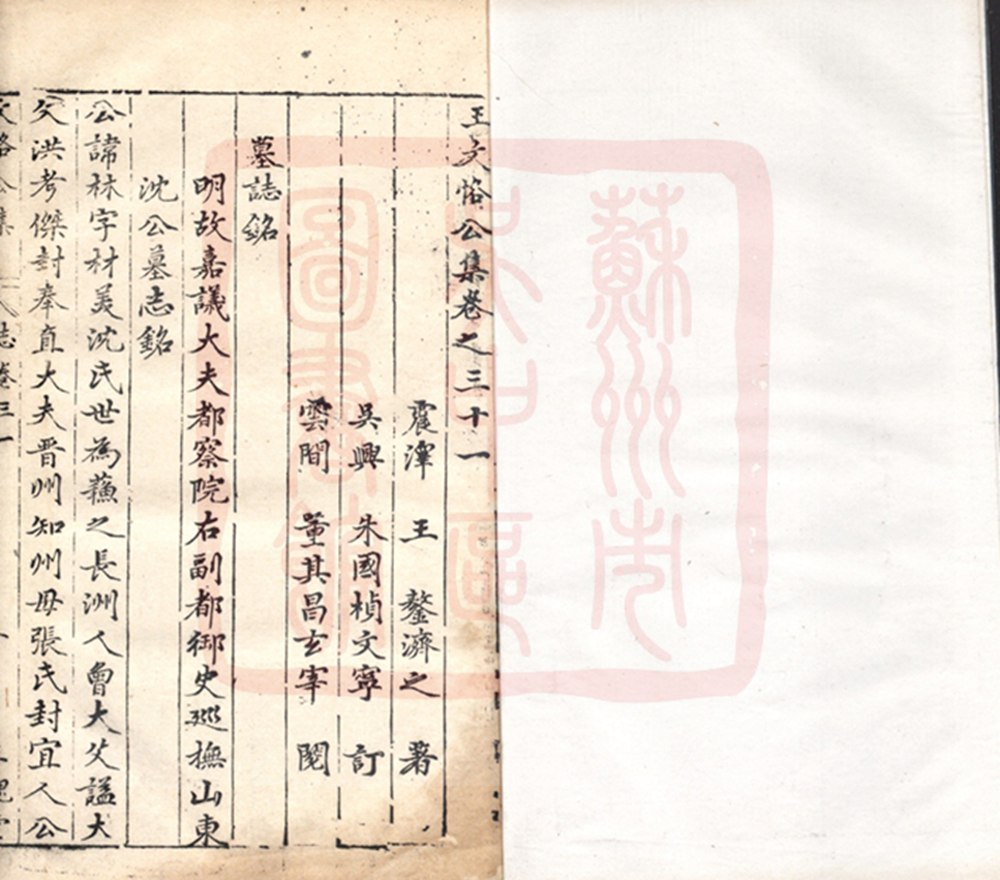 王文恪公集卷之三十一
震澤 王 鏊濟之 著
吳興 朱國楨文寧 訂
雲間 董其昌玄宰 閱
墓誌銘
明故嘉議大夫都察院右副都御史巡撫山東
沈公墓志銘
公諱林字材美沈氏世為蘓之長洲人曾大父謚大
父洪考傑封奉直大夫晋州知州母張氏封宜人公
文恪公集 志卷三一
蘇州市吳中區圖書館